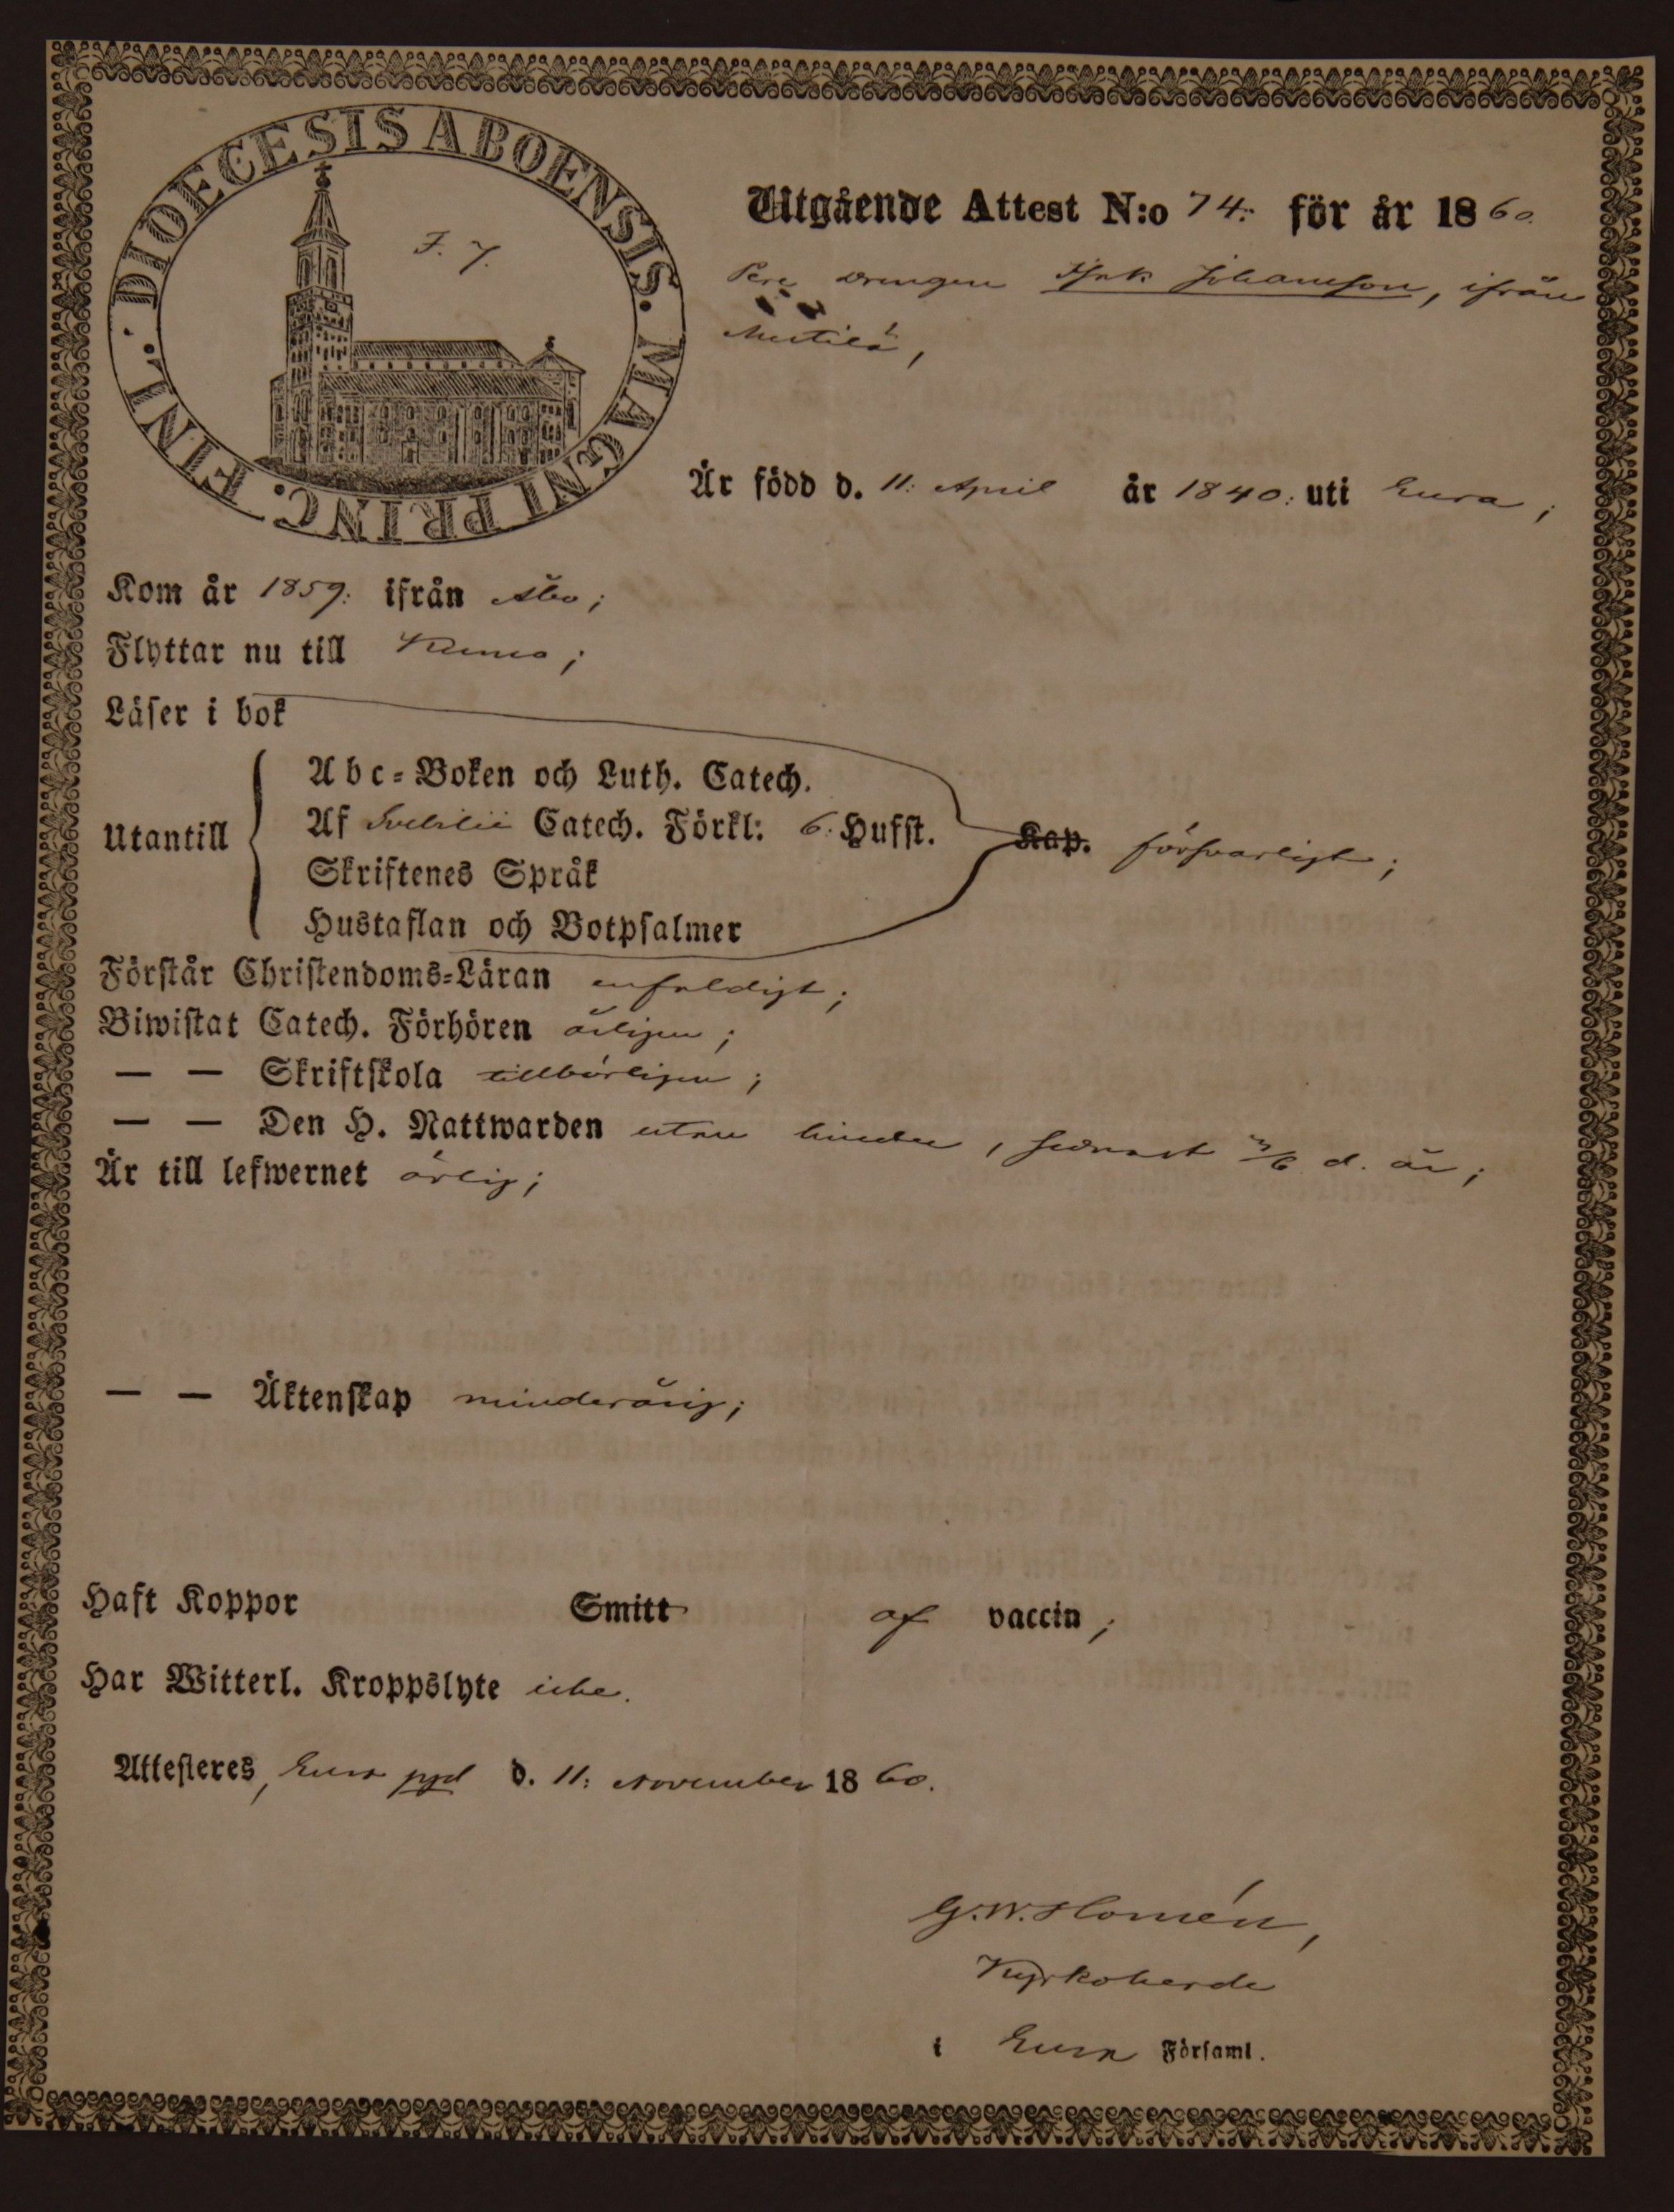 DIOECESIS ABOENSIS. MAGNI PRINC. FINL.
F. 7.
Utgående Attest N:o 74. för år 1860.
drengen Isak Johansson, ifrån
Är född d. 11: April år 1840: uti Eura;
Kom år 1859: ifrån Åbo;
Flyttar nu till Kumo;
Läser i bok
Utantill
Abc-Boken och Luth. Catech.
Af Svebilii Catech. Förkl: 6. Hufst. Kap. försvarligt;
Skriftenes Språk
Hustaflan och Botpsalmer
Förstår Christendoms-Läran enfaldigt;
Biwistat Catech. Förhören årligen;
— — Skriftskola tillbörligen;
— — Den H. Nattwarden utan hinder, sednast d. år;
Är till lefwernet ärlig;
— — Äktenskap minderårig;
Haft Koppor Smitt af vaccin;
Har Witterl. Kroppslyte icke.
Attesteres, Eura pgd d. 11: November 1860.
G. W. Homén,
Kyrkoherde
i Eura Församl.